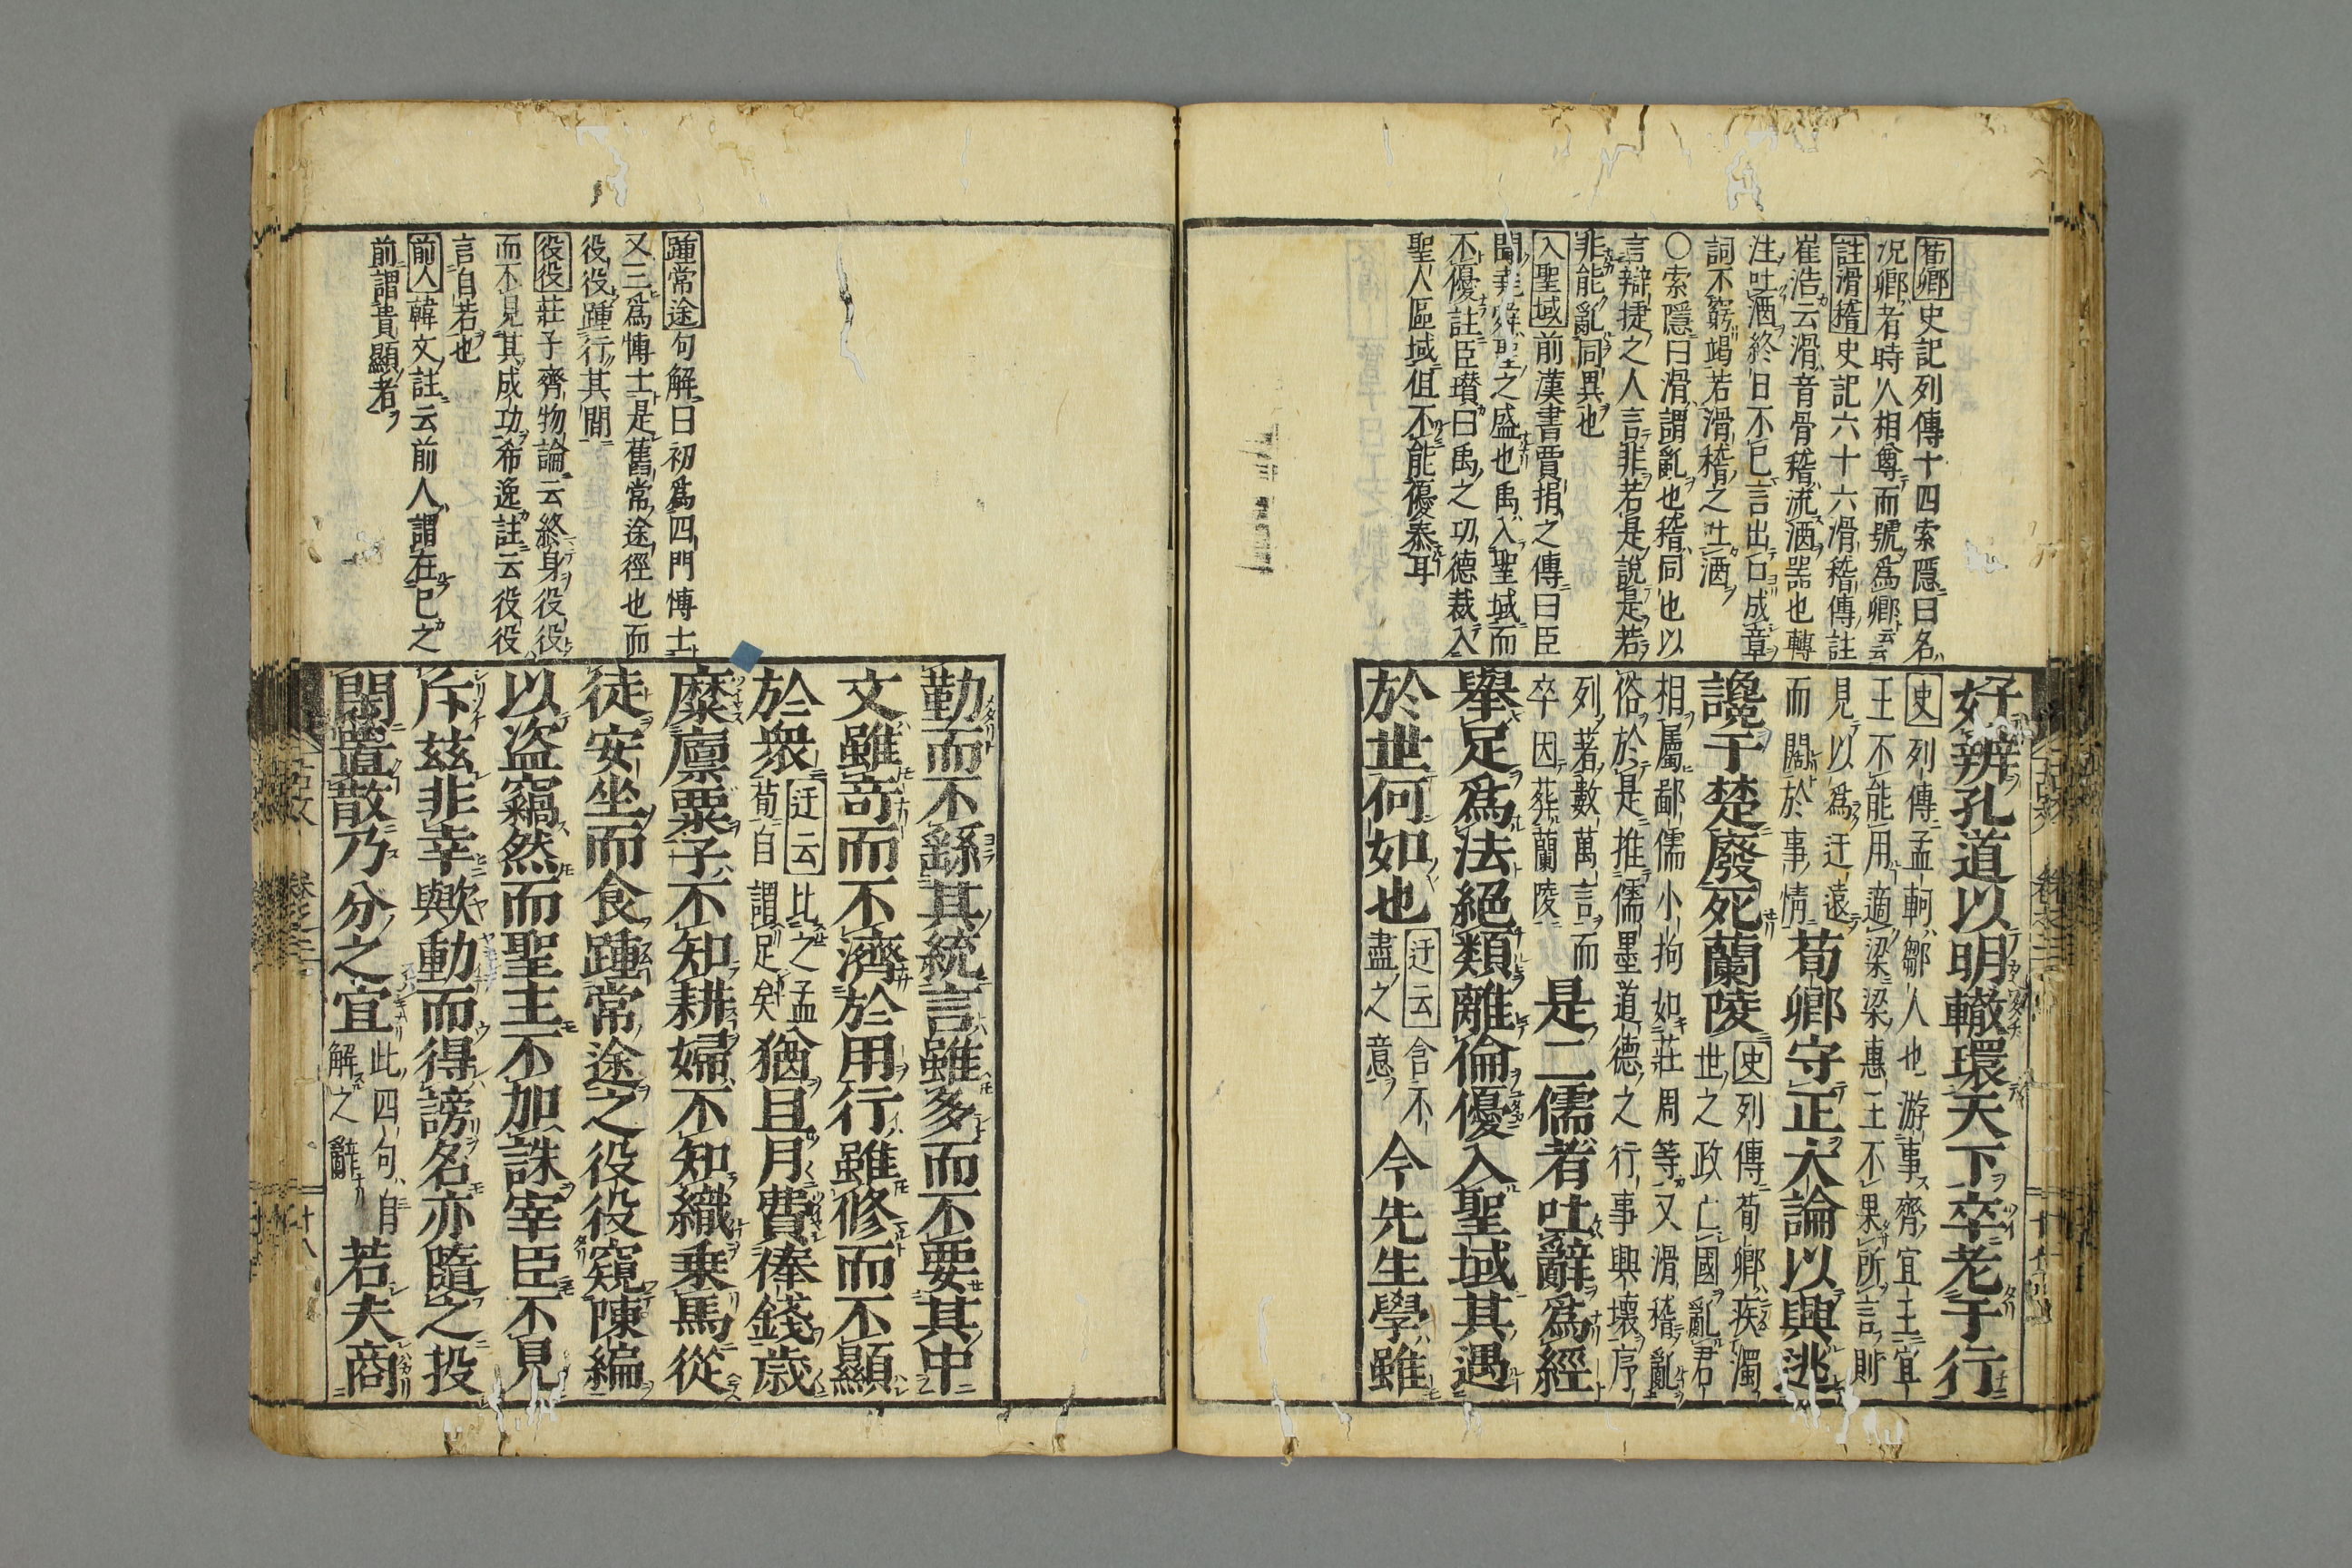 荀卿史記列傳十四索隠曰名
况卿者時人相尊而號爲卿云云
註滑稽史記六十六滑稽傳註
崔浩云滑音骨稽流酒器也轉
注吐酒終日不已言出口成章
詞不窮竭若滑稽之吐酒
〇索隱曰滑謂亂也稽同也以
言辯捷之人言非若是說是若
非能亂同異也
入聖域前漢書賈捐之傳曰臣
聞堯舜聖之盛也禹入聖域而
不優註臣瓉曰禹之功德裁入
聖人區域但不能優泰耳
好辨孔道以明轍環天下卒老于行
史列傳孟軻鄒人也游事齊宣王宣
王不能用適梁梁惠王不果所言則
見以爲迂遠
而闊於事情荀卿守正大論以興逃
讒于楚廢死蘭陵史列傳荀卿疾濁
世之政亡國亂君
相屬鄙儒小拘如莊周等又滑稽亂
俗於是推儒墨道德之行事興壊序
列著數萬言而
卒因葬蘭陵是二儒者吐辭爲經
舉足爲法絕類離倫優入聖域其遇
於世何如也迂云含不
盡之意今先生學雖
踵常途句解曰初爲四門博士
又三爲博士是舊常途徑也而
役役踵行其間
役役莊子齊物論云終身役役
而不見其成功希逸註云役役
言自若也
前人韓文註云前人謂在已之
前謂貴顯者
勤而不繇其統言雖多而不要其中
文雖奇而不濟於用行雖修而不顯
於衆迂云比之孟
荀自謂足矣猶且月費俸錢歳
糜廪粟子不知耕婦不知織乗馬從
徒安坐而食踵常途之役役窺陳編
以盗竊然而聖主不加誅宰臣不見
斥兹非幸歟動而得謗名亦隨之投
閑置散乃分之宜此四句自
解之辭若夫商